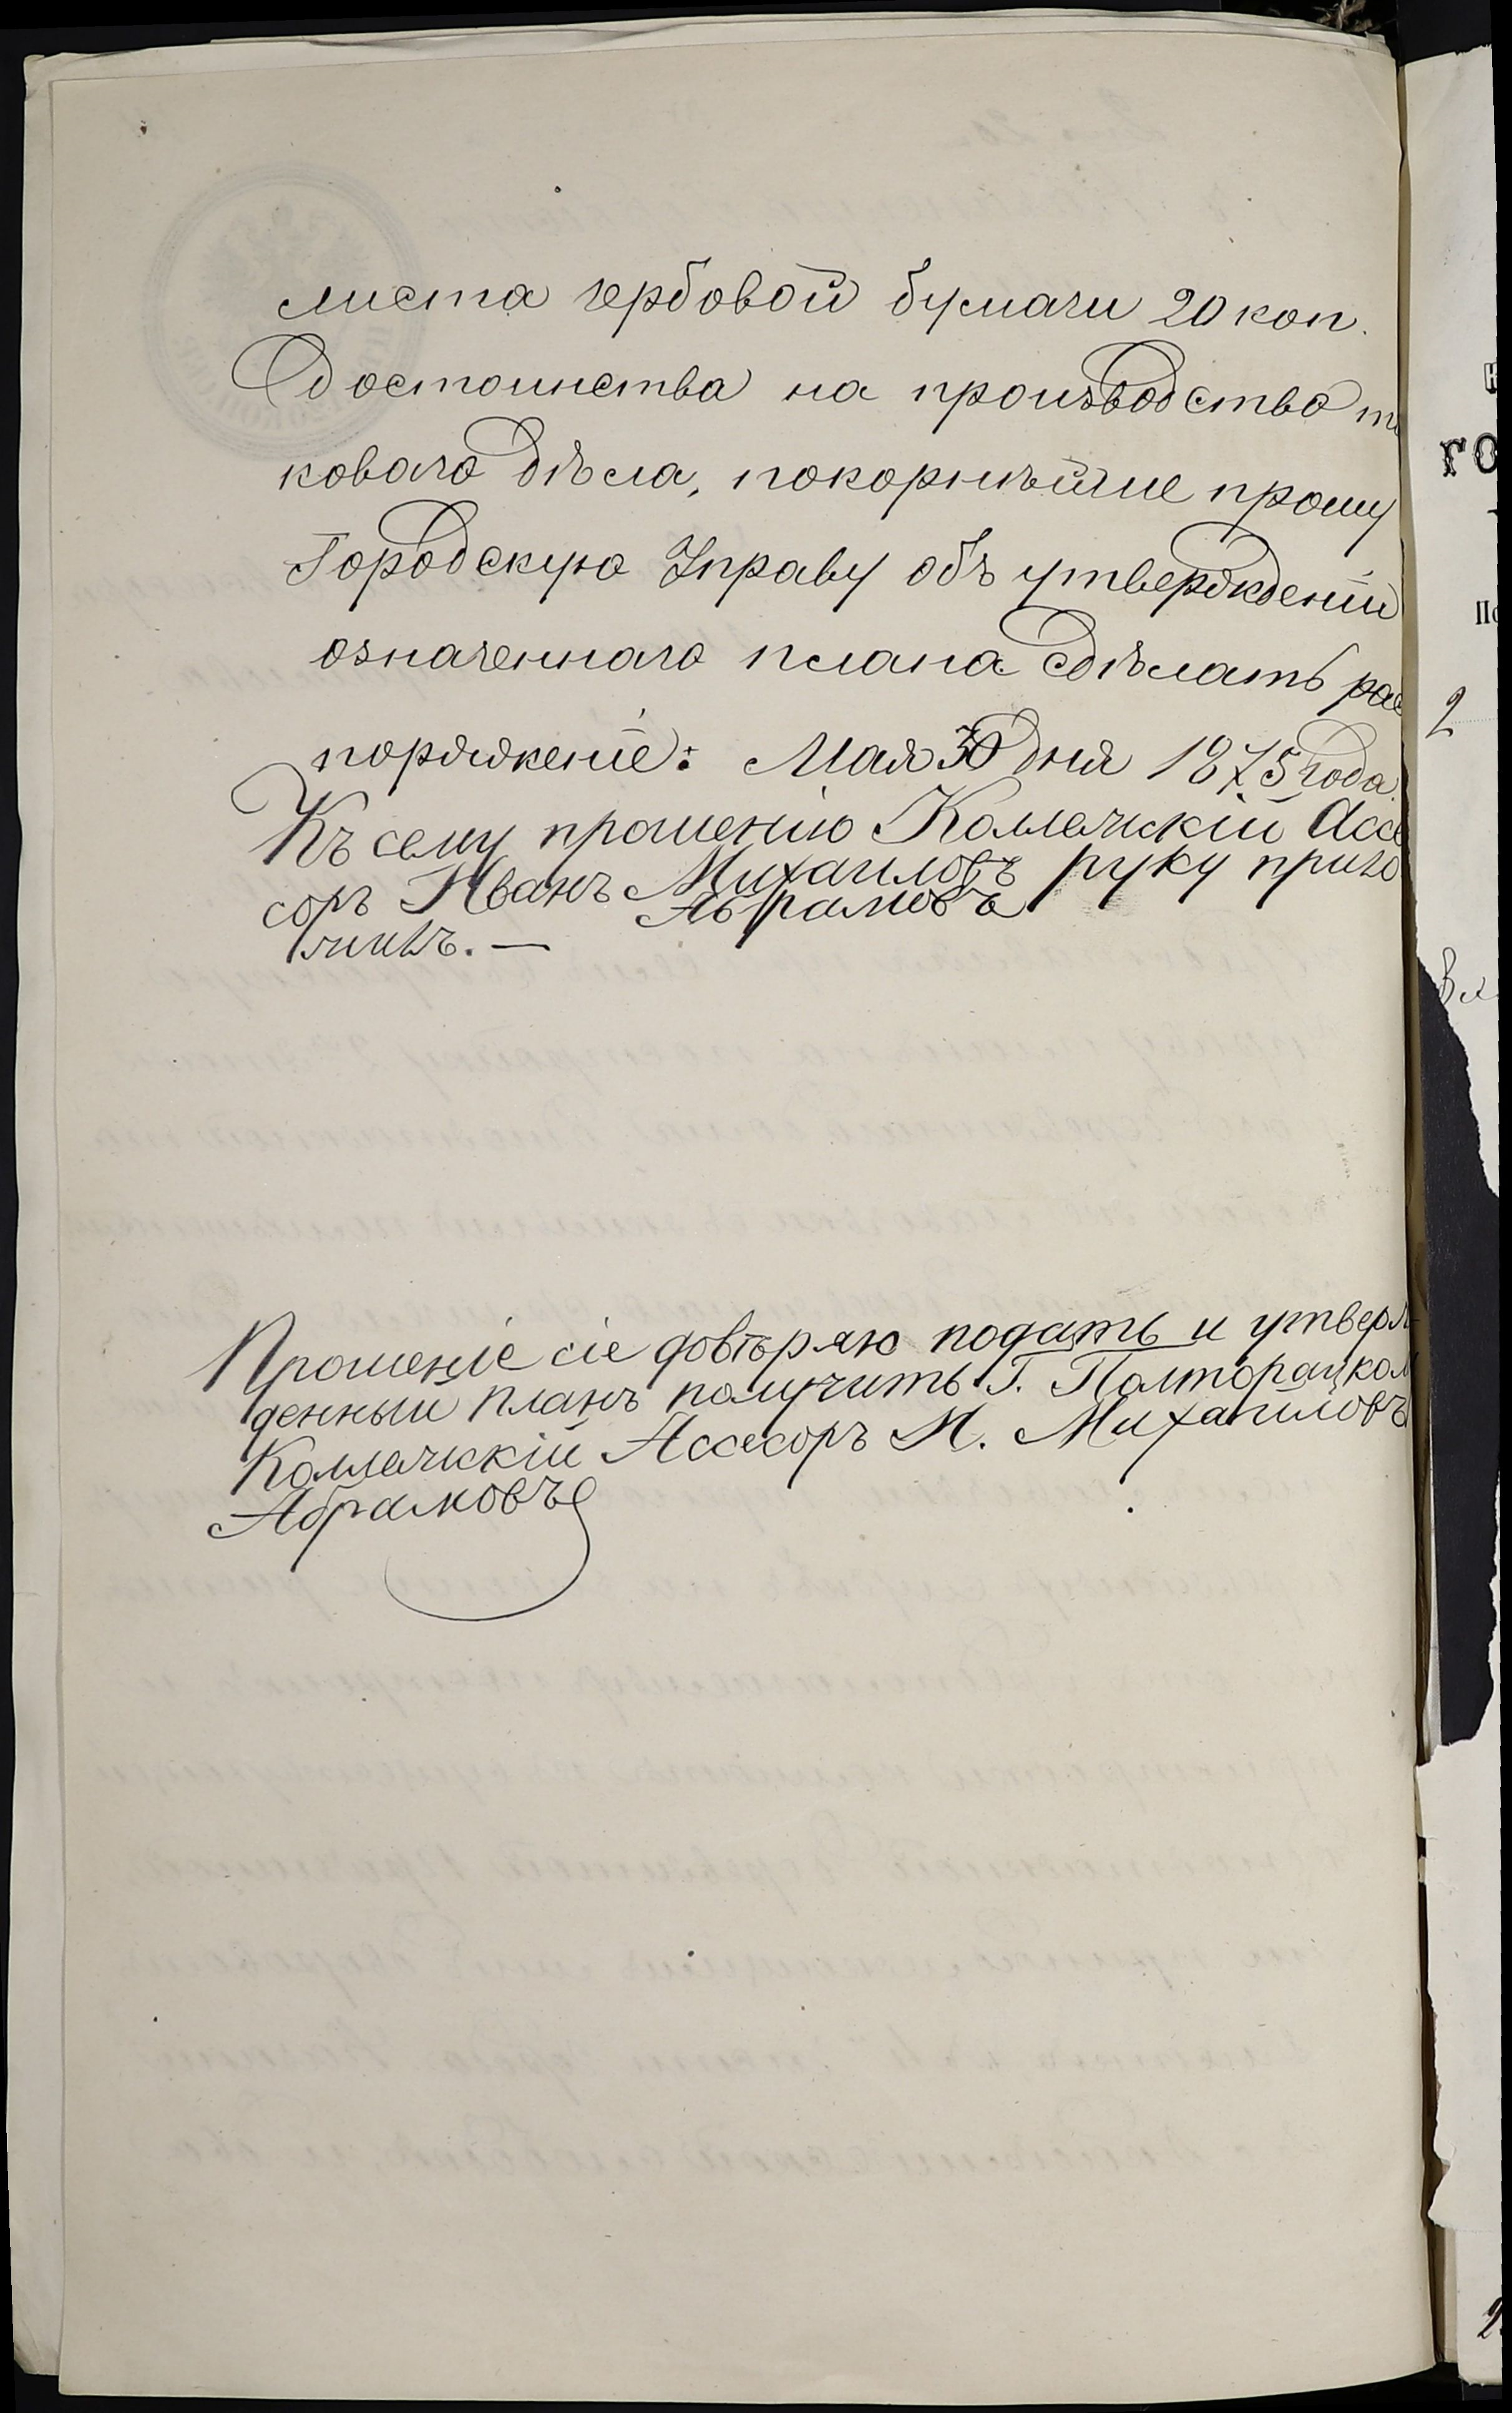 листа гербовой бумаги 20 коп.
достоинства на производство та
коваго дѣла, покорнѣйше прошу
Городскую Управу объ утвержденіи
означеннаго плана сдѣлать рас
поряженіе: Мая 30 дня 1875 года.
Къ сему прошенію Коллежскій Ассе
соръ Иванъ Михаиловъ руку прило
Абрамовъ
жилъ. —
Прошеніе сіе довѣряю подать и утверж
денный планъ получить Г. Полторацком
Коллежскій Ассесоръ И. Михаиловъ
Абрамовъ
го
2